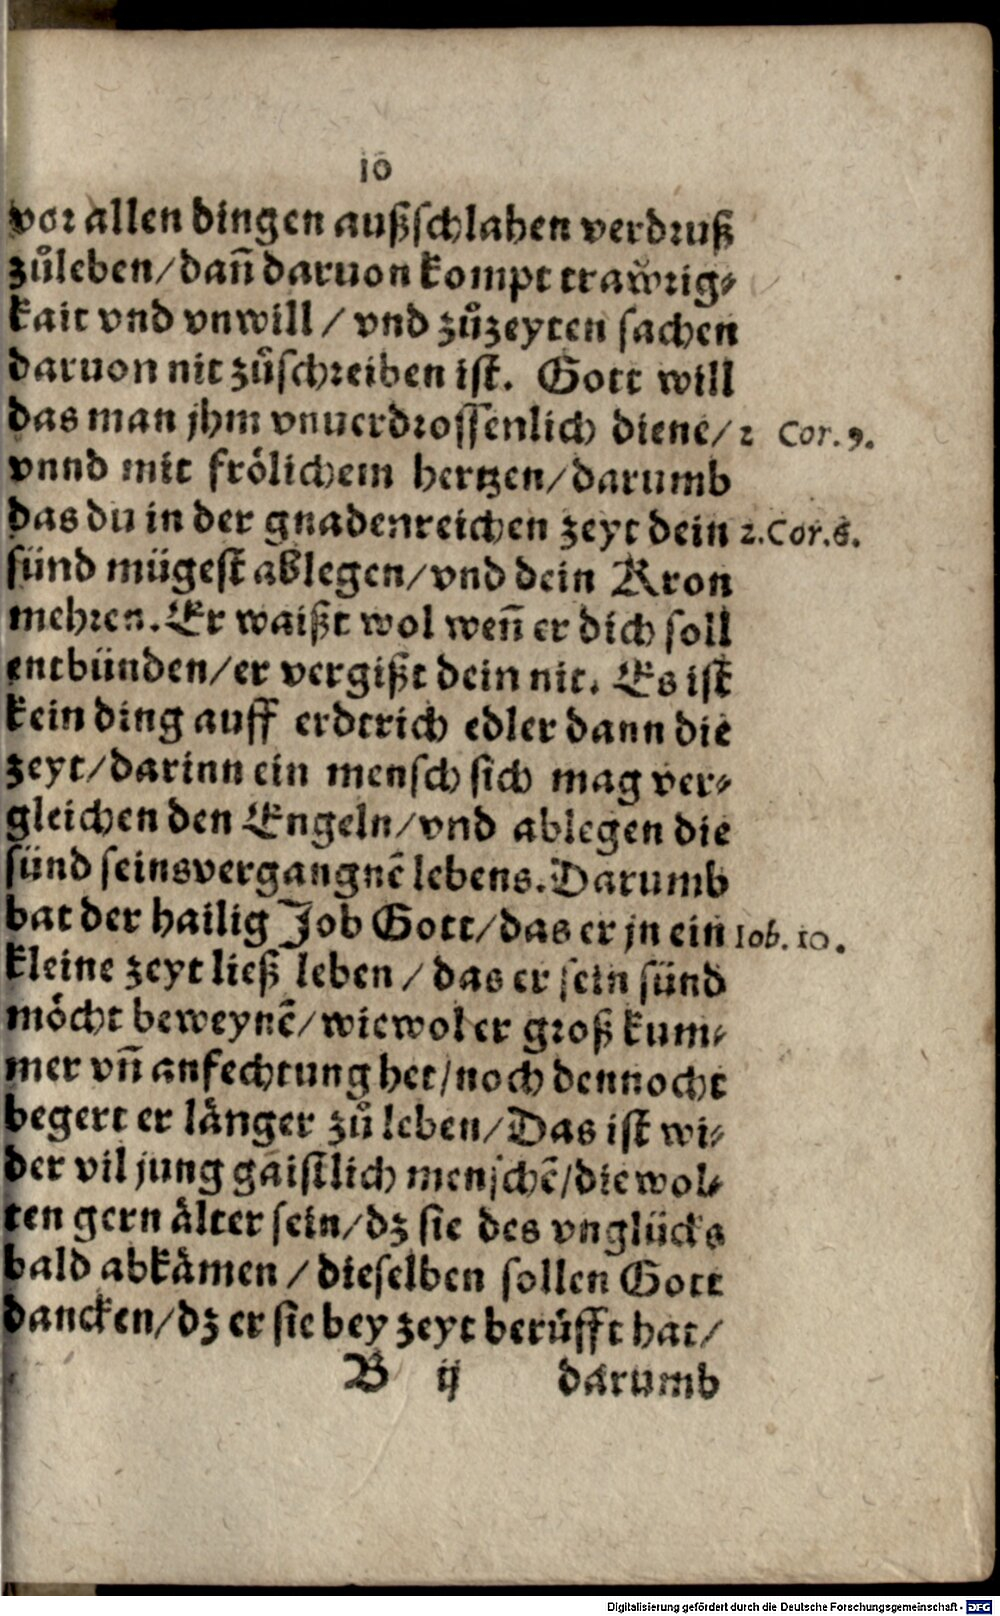 10
vor allen dingen außschlahen verdruß
zůleben/dañ daruon kompt trawrig-
kait vnd vnwill / vnd zůzeyten sachen
daruon nit zůschreiben ist. Gott will
das man jhm vnuerdrossenlich diene/ 2 Cor. 9.
vnnd mit frölichem hertzen/darumb
das du in der gnadenreichen zeyt dein 2.Cor.6.
sünd mügest ablegen/vnd dein Kron
mehren. Er waißt wol weñ er dich soll
entbünden/er vergißt dein nit. Es ist
kein ding auff erdtrich edler dann die
zeyt/darinn ein mensch sich mag ver-
gleichen den Engeln/vnd ablegen die
sünd seins vergangnē lebens. Darumb
bat der hailig Job Gott/das er jn ein Iob. 10.
kleine zeyt ließ leben / das er sein sünd
möcht beweynē/wiewol er groß kum-
mer vñ anfechtung het/noch dennocht
begert er länger zů leben/Das ist wi-
der vil jung gaistlich menschē/die wol-
ten gern älter sein/dz sie des vnglücks
bald abkämen / dieselben sollen Gott
dancken/dz er sie bey zeyt berůfft hat/
B ij darumb
Digitalisierung gefördert durch die Deutsche Forschungsgemeinschaft - DFG